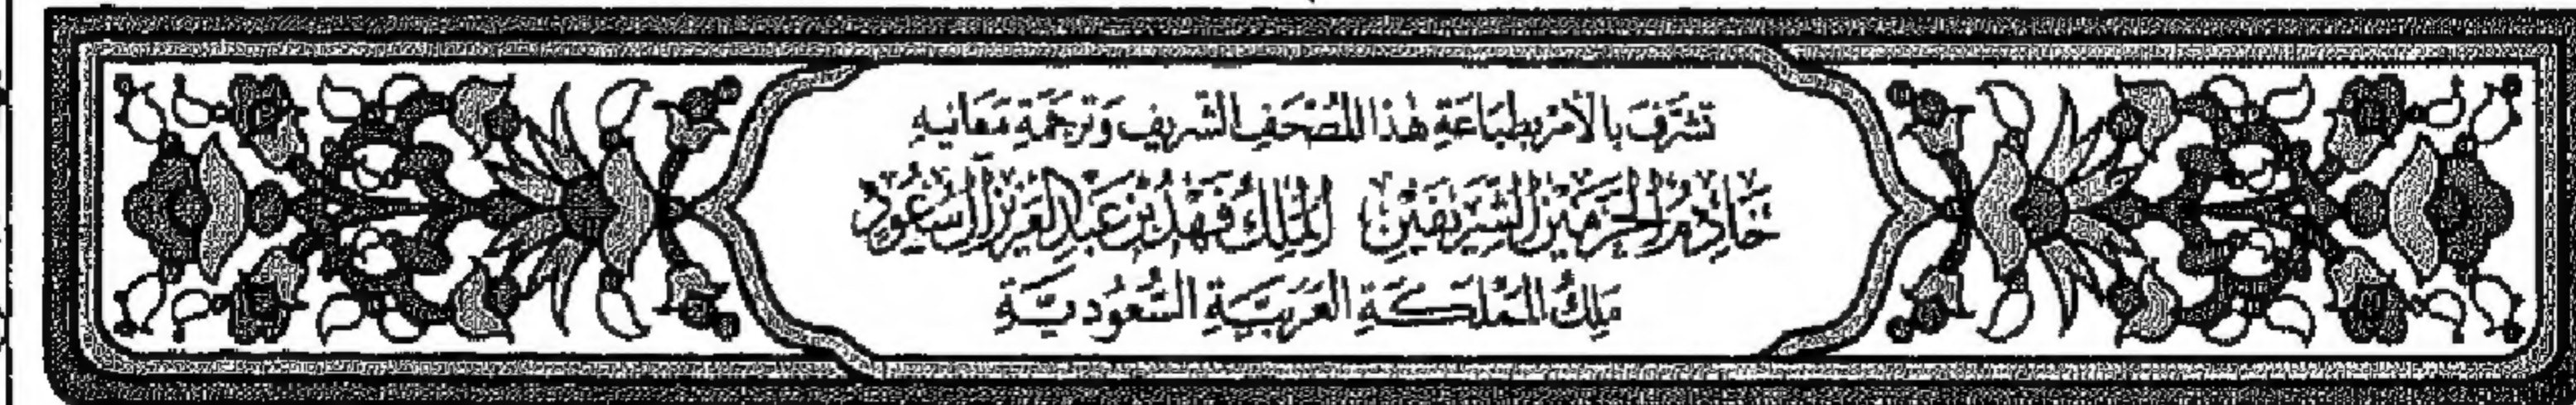 تَشَرَّفَ بِالأَمْرِ بِطِبَاعَةِ هٰذَا المُصْحَفِ الشَّرِيفِ وَتَرْجَمَةِ مَعَانِيهِ
خَادِمُ الحَرَمَيْنِ الشَّرِيفَيْنِ المَلِكُ فَهْدُ بْنُ عَبْدِ العَزِيزِ آل سُعُود
مَلِكُ المَمْلَكَةِ العَرَبِيَّةِ السُّعُودِيَّةِ